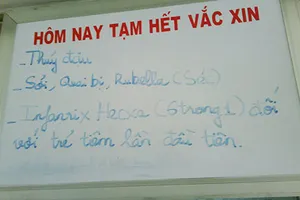 HÔM NAY TẠM HẾT VẮC XIN
- Thuỷ đậu
- Sởi, Quai bị, Rubella (
- Infanrix Hexa (Strong 1) đối
với trẻ tiêm lần đầu tiên.